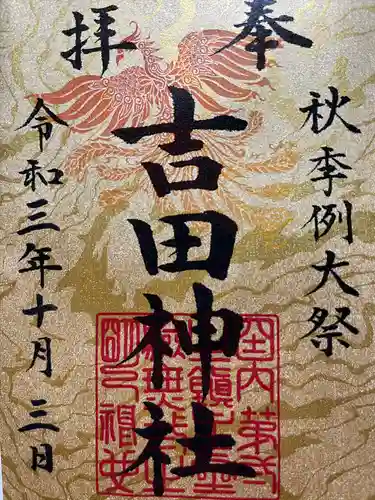 奉拝
秋季例大祭
吉田神社
令和三年十月三日